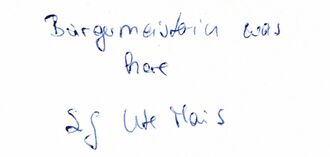 Bürgermeisterin was
here
Ute Mais